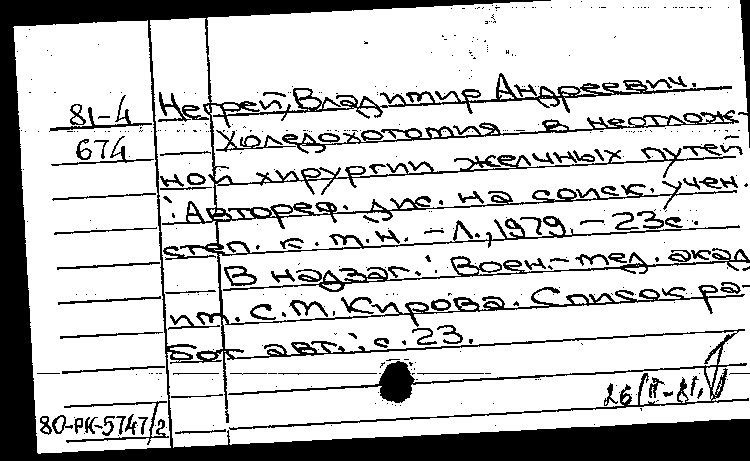 81-4
674
Негрей, Владимир Андреевич.
Холедохотомия в неотлож-
ной хирургии желчных путей
: Автореф. дис. на соиск. учен.
степ. к.м.н. - Л., 1979. - 23с.
В надзаг.: Воен.-мед. акад
им. С.М. Кирова. Список ра-
бот авт.: с. 23.
26/II-81.
80-РК-5747/2